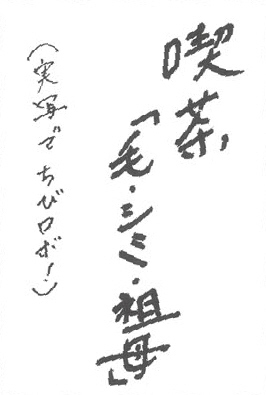 喫茶
「毛・シミ・祖母」
（実写でちびロボ！）